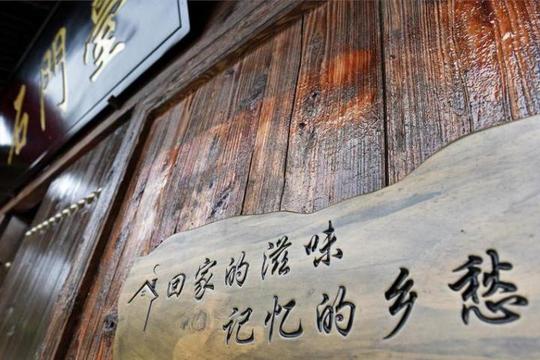 石門臺
回家的滋味
记忆的乡愁